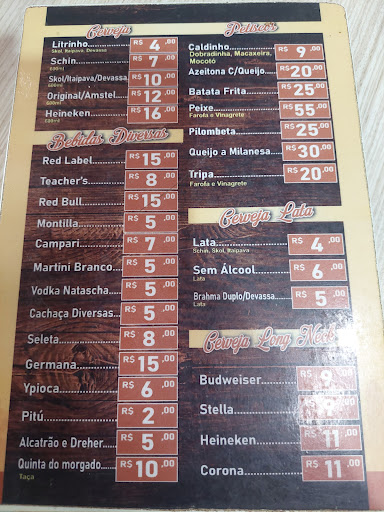 Cerveja
Litrinho R$ 4,00
Skol, Itaipava, Devassa
Schin R$ 7,00
600ml
Skol/Itaipava/Devassa R$ 10,00
600ml
Original/Amstel R$ 12,00
600ml
Heineken R$ 16,00
600ml
Bebidas Diversas
Red Label R$ 15,00
Teacher's R$ 8,00
Red Bull R$ 15,00
Montilla R$ 5,00
Campari R$ 7,00
Martini Branco R$ 5,00
Vodka Natascha R$ 5,00
Cachaça Diversas R$ 5,00
Seleta R$ 8,00
Germana R$ 15,00
Ypioca R$ 6,00
Pitú R$ 2,00
Alcatrão e Dreher R$ 5,00
Quinta do morgado R$ 10,00
Taça
Petiscos
Caldinho R$ 9,00
Dobradinha, Macaxeira,
Mocotó
Azeitona C/Queijo R$ 20,00
Batata Frita R$ 25,00
Peixe R$ 55,00
Farofa e Vinagrete
Pilombeta R$ 25,00
Queijo a Milanesa R$ 30,00
Tripa R$ 20,00
Farofa e Vinagrete
Cerveja Lata
Lata R$ 4,00
Schin, Skol, Itaipava
Sem Álcool R$ 6,00
Lata
Brahma Duplo/Devassa R$ 5,00
Lata
Cerveja Long Neck
Budweiser R$ 9,00
Stella R$ ,00
Heineken R$ 11,00
Corona R$ 11,00